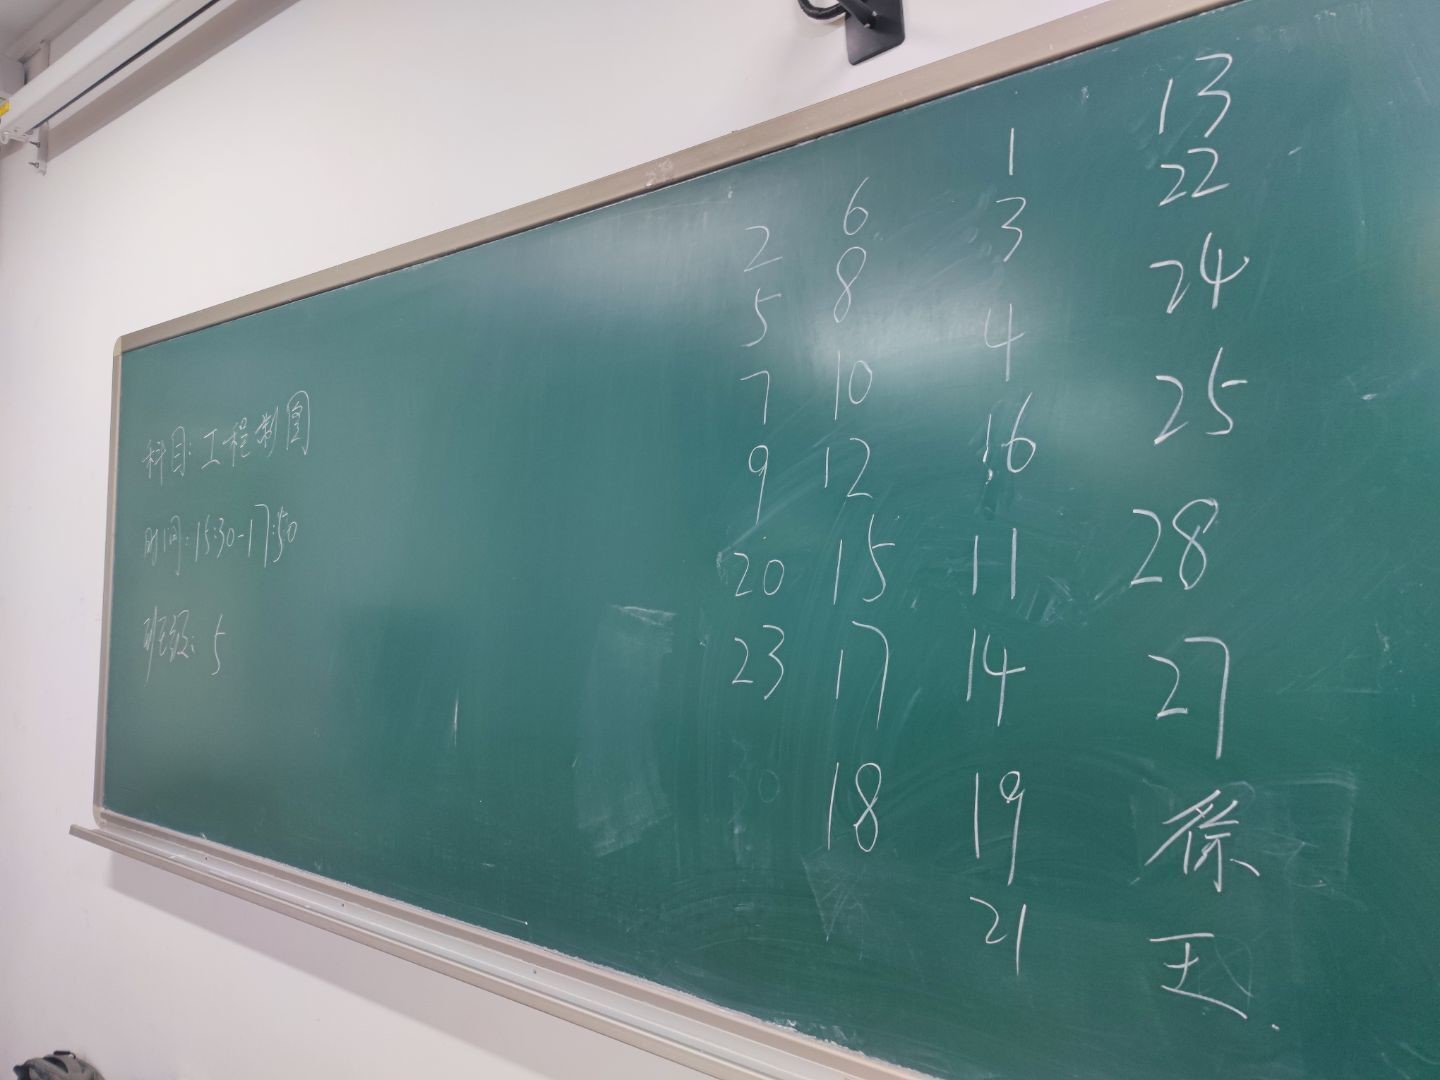 科目:工程制图
时间:15:30-17:50
班级:5
2
5
7
9
20
23
6
8
10
12
15
17
18
1
3
4
16
11
14
19
21
13
22
24
25
28
27
徐
王